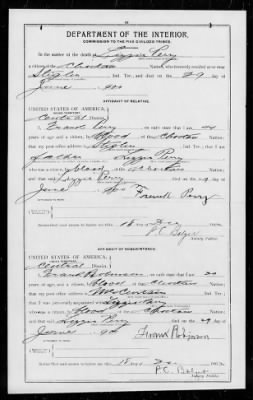 DEPARTMENT OF THE INTERIOR.
COMMISSION TO THE FIVE CIVILIZED TRIBES.
In the matter of the death of Lizzie Perry
a citizen of the Choctaw Nation, who formerly resided at or near
Stigler, Ind. Ter., and died on the 29 day of
June
AFFIDAVIT OF RELATIVE.
UNITED STATES OF AMERICA,
INDIAN TERRITORY,
Central District.
I, Perry, on oath state that I am
years of age and a citizen, by blood, of the Choctaw Nation;
that my post office address is Stigler, Ind. Ter.; that I am
father of Lizzie Perry
who was a citizen, by blood, of the Choctaw Nation;
and that said Lizzie Perry died on the 29 day of
June
Perry
Subscribed and sworn to before me this 18 day of Dec
Notary Public.
AFFIDAVIT OF ACQUAINTANCE.
UNITED STATES OF AMERICA,
INDIAN TERRITORY,
Central District.
I, Frank Robinson, on oath state that I am
years of age, and a citizen by blood of the Choctaw Nation;
that my post office address is Ind. Ter.;
that I was personally acquainted with Lizzie Perry
who was a citizen, by blood, of the Choctaw Nation;
and that said Lizzie Perry died on the 29 day of
June
Frank Robinson
Subscribed and sworn to before me this 18 day of Dec
Notary Public.